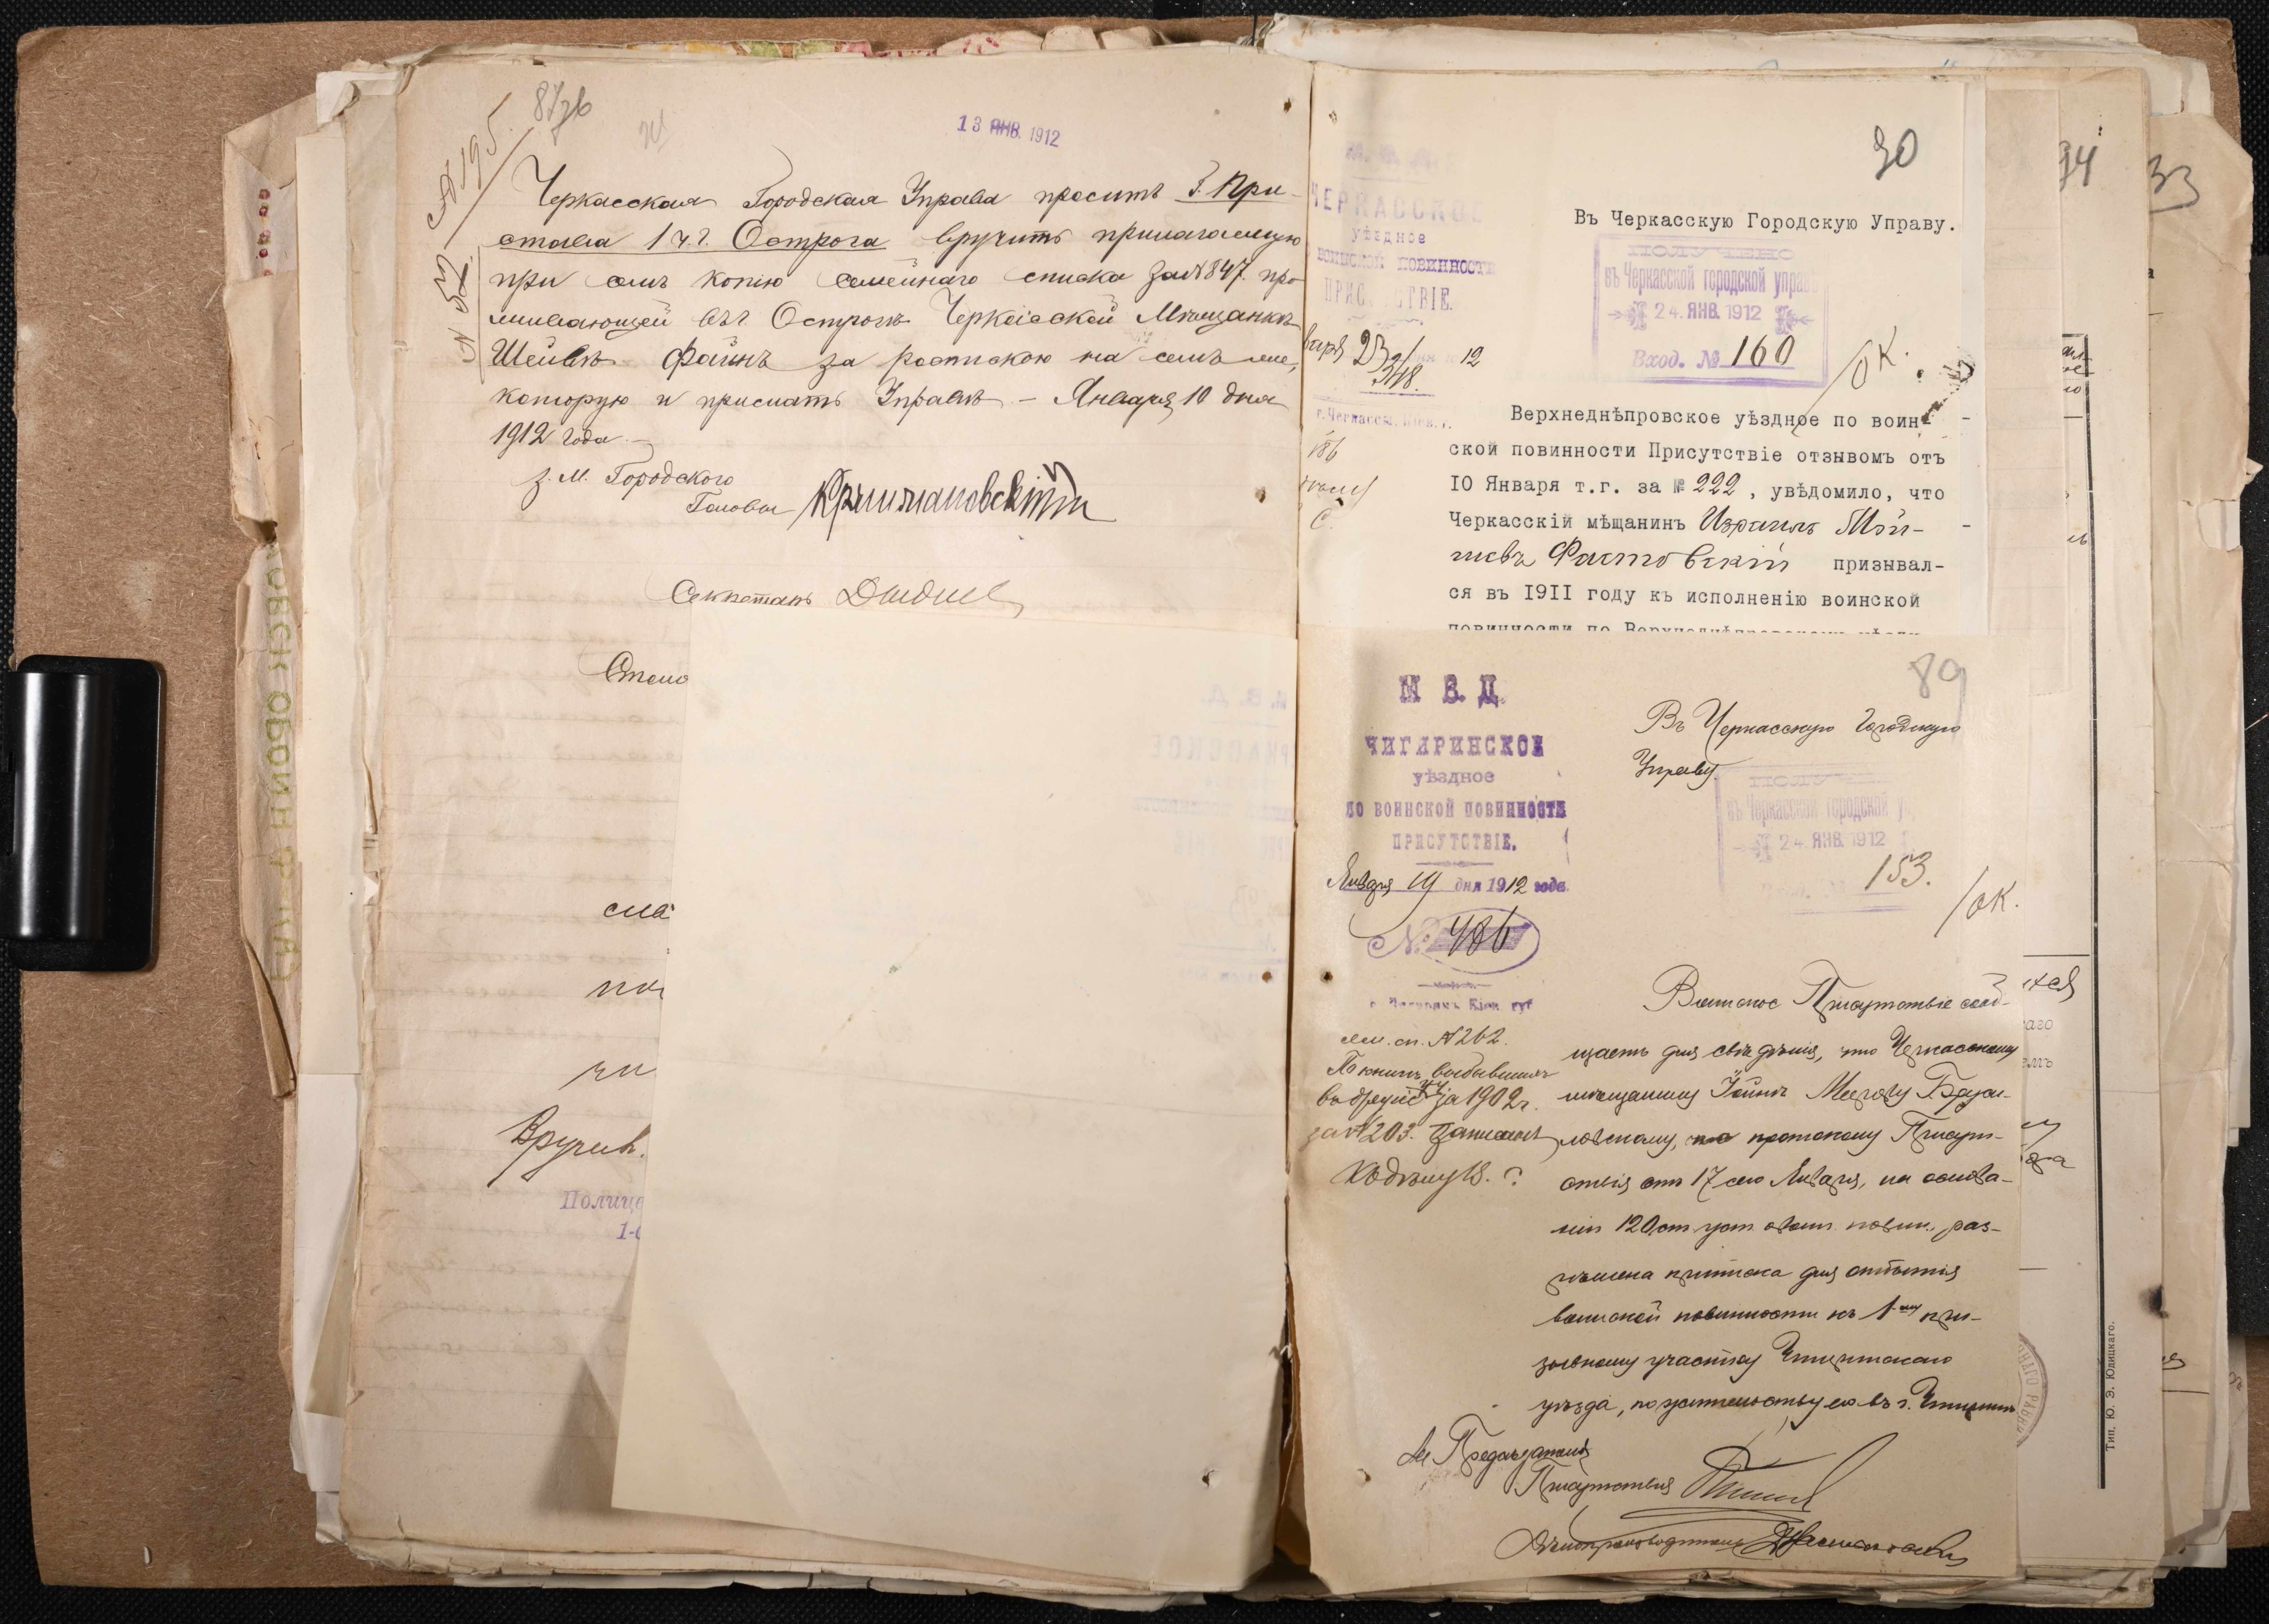 87 об
13 ЯНВ. 1912
№ 195
№ 52
Черкасская Городская Управа проситъ Г. При-
става 1 ч. г. Острога вручить прилагаемую
при семъ копію семейнаго списка за №847. про-
живающей въ г. Острогѣ Черкасской Мѣщанкѣ
Шейвѣ Файнъ за росписkою на семъ же,
которую и прислать Управѣ – Января 10 дня
1912 года
З. М. Городского
Головы
Секретарь
Столо
сла
по
чи
Вручив.
Полице
1-
30
ЧЕРКАССКОЕ
уѣздное
ВОИНСКОЙ ПОВИННОСТИ
ПРИС СТВІЕ.
варя 23 12
318
г. Черкассы,
Въ Черкасскую Городскую Управу.
ПОЛУЧЕНО
въ Черкасской городской управ
24. ЯНВ. 1912
Вход. № 160
/ОК.
Верхнеднѣпровское уѣздное по воин-
ской повинности Присутствіе отзывомъ отъ
10 Января т.г. за № 222, увѣдомило, что
Черкасскій мѣщанинъ Израиль Мой-
шевъ Фастовскій призывал-
ся въ 1911 году къ исполненію воинской
повинности по Верхнеднѣпровскому уѣзду
89
М. В. Д.
ЧИГИРИНСКОЕ
уѣздное
ПО ВОИНСКОЙ ПОВИННОСТИ
ПРИСУТСТВІЕ.
Января 19 дня 1912 года.
№ 486
г. Чигиринъ Кіев. губ.
Въ Черкасскую Городскую
Управу
въ Черкасской городской у
24 ЯНВ. 1912
153.
/ОК.
сем. сп. №262.
По книгѣ выбывшихъ
за 1902 г.
за №203. записанъ
Воинское Присутствіе сооб-
щаетъ для свѣдѣнія, что Черкасскому
мѣщанину
ловскому, по протоколу Присут-
ствія отъ 17 сего Января, на основа-
ніи 120 ст уст. о воин. повин., раз-
рѣшена приписка для отбытія
воинской повинности къ 1-му при-
зывному участку Чигиринскаго
уѣзда, по жительству его въ г. Чигиринѣ
Предсѣдатель
Присутствія
Дѣлопроизводитель
94
33
Тип. Ю. Э. Юдицкаго.